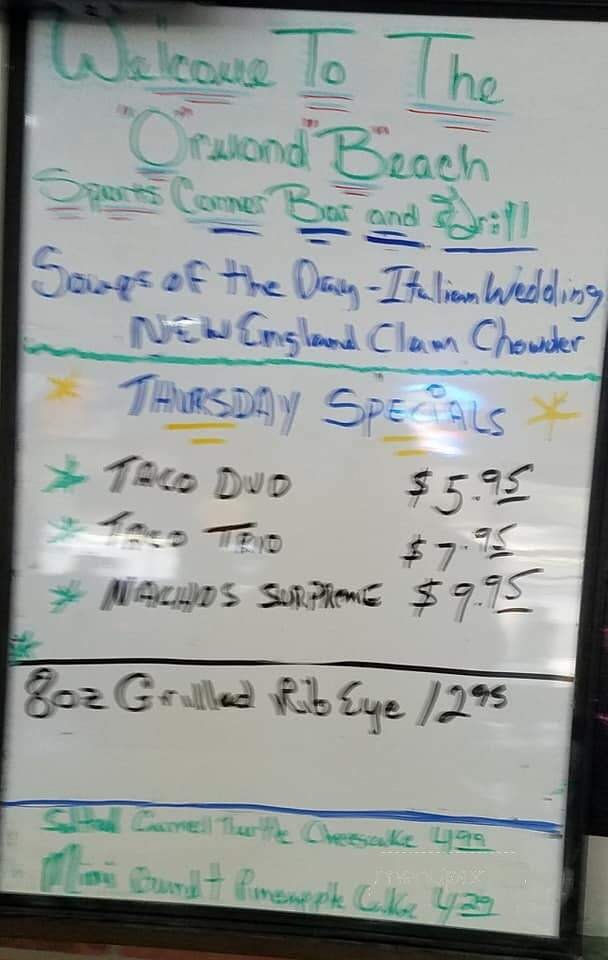 Welcome To The
"Ormond" "Beach"
Sports Corner Bar and Grill
Soups of the Day - Italian Wedding
New England Clam Chowder
THURSDAY SPECIALS
TACO DUO $5.95
TACO TRIO $7.95
NACHOS SURPREME $9.95
8oz Grilled Rib Eye 12 95
Salted Carmell Turttle Cheesecake 4 99
Mini Bundt Pineapple Cake 4 29